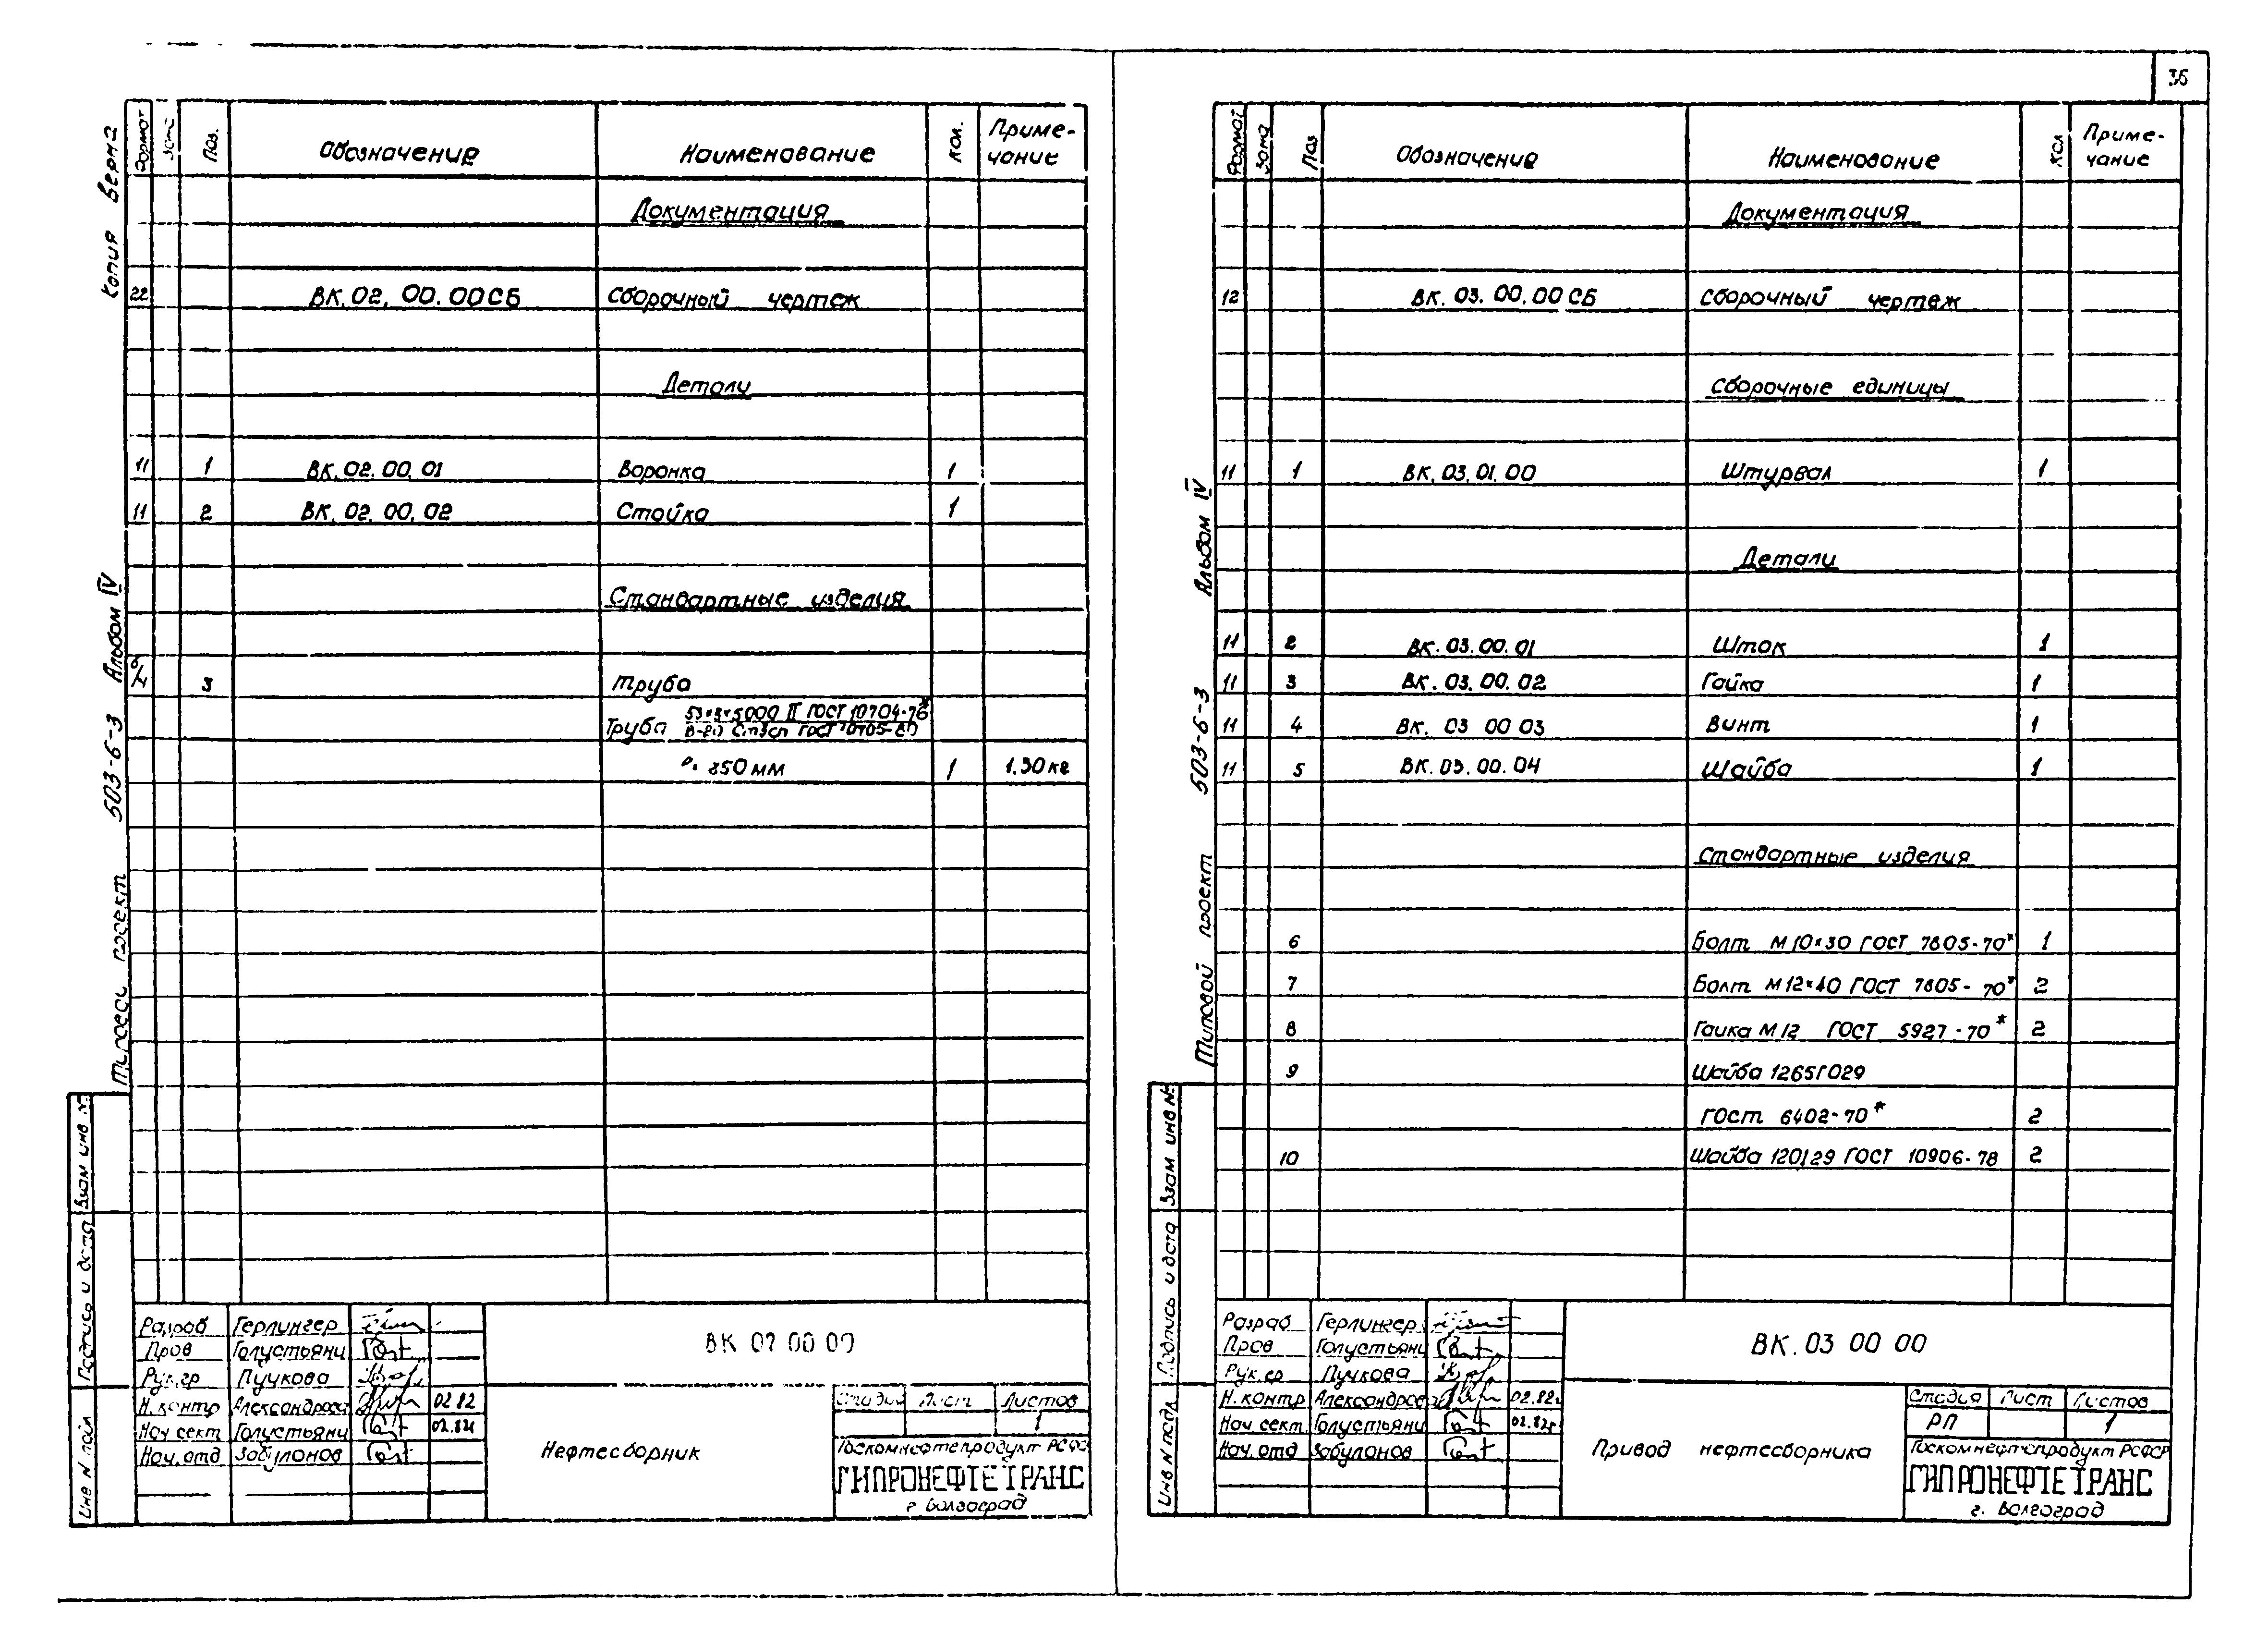 36
Копия верна
Формат Зона Поз. Обозначение Наименование Кол. Приме-
чание
Документация
22 ВК.02.00.00СБ Сборочный чертеж
Детали
11 1 ВК.02.00.01 Воронка 1
11 2 ВК.02.00.02 Стойка 1
Стандартные изделия
б/ч 3 Труба
Труба ГОСТ 10704-76*
ГОСТ 10705-80
850 мм 1 1.30 кг
Альбом IV
503-6-3
проект
Взам инв №
Подпись и дата
Инв № подл
Разраб Герлингер
Пров Голустьянц
Рук.гр Пучкова
Н.контр Александрова 02.82
Нач сект Голустьянц 02.82г
Нач.отд Забулонов
ВК 02 00 00
Нефтесборник
Стадия Лист Листов
1
Госкомнефтепродукт РСФСР
ГИПРОНЕФТЕТРАНС
г Волгоград
Формат Зона Поз Обозначение Наименование Кол Приме-
чание
Документация
12 ВК.03.00.00СБ Сборочный чертеж
Сборочные единицы
11 1 ВК.03.01.00 Штурвал 1
Детали
11 2 ВК.03.00.01 Шток 1
11 3 ВК.03.00.02 Гайка 1
11 4 ВК. 03 00 03 Винт 1
11 5 ВК.03.00.04 Шайба 1
Стандартные изделия
6 Болт М10×30 ГОСТ 7805-70* 1
7 Болт М12×40 ГОСТ 7805-70* 2
8 Гайка М12 ГОСТ 5927-70* 2
9 Шайба 1265Г029
ГОСТ 6402-70* 2
10 Шайба 120129 ГОСТ 10906-78 2
Альбом IV
503-6-3
Типовой проект
Взам инв №
Подпись и дата
Инв № подл
Разраб Герлингер
Пров Голустьянц
Рук.гр Пучкова
Н.контр Александрова 02.82г
Нач.сект. Голустьянц 02.82г
Нач.отд Забулонов
ВК.03 00 00
Привод нефтесборника
Стадия Лист Листов
РП 1
Госкомнефтепродукт РСФСР
ГИПРОНЕФТЕТРАНС
г. Волгоград